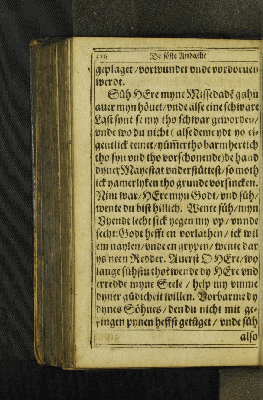 De söste Andacht
geplaget / vorwundet vnde vordoruen
werdt.
Süh HEre myne Missedadē gahn
auer myn höuet / vnde alse eine schware
Last synt se my tho schwar geworden /
vnde wo du nicht ( alse denn ydt yo ei-
gentlick temet / yümmer tho barmhertich
tho syn vnd tho vorschonende) de handt
dyner Mayestat vnderstüttest / so moth
ick yamerlyken tho grunde vorsincken.
Nim war / HEre myn Godt / vnd süh /
wente du bist hillich. Wente süh / myn
Vyendt lecht sick yegen my vp / vnnde
secht: Godt hefft en vorlathen / ick wil
em naylen / vnde en grypen / wente dar
ys neen Redder. Auerst O HEre / wo
lange sühstu tho? wende dy HEre vnd
erredde myne Seele / help my vmme
dyner güdicheit willen. Vorbarme dy
dynes Söhnes / den du nicht mit ge-
ringen pynen heffst getüget / vnde süh
also